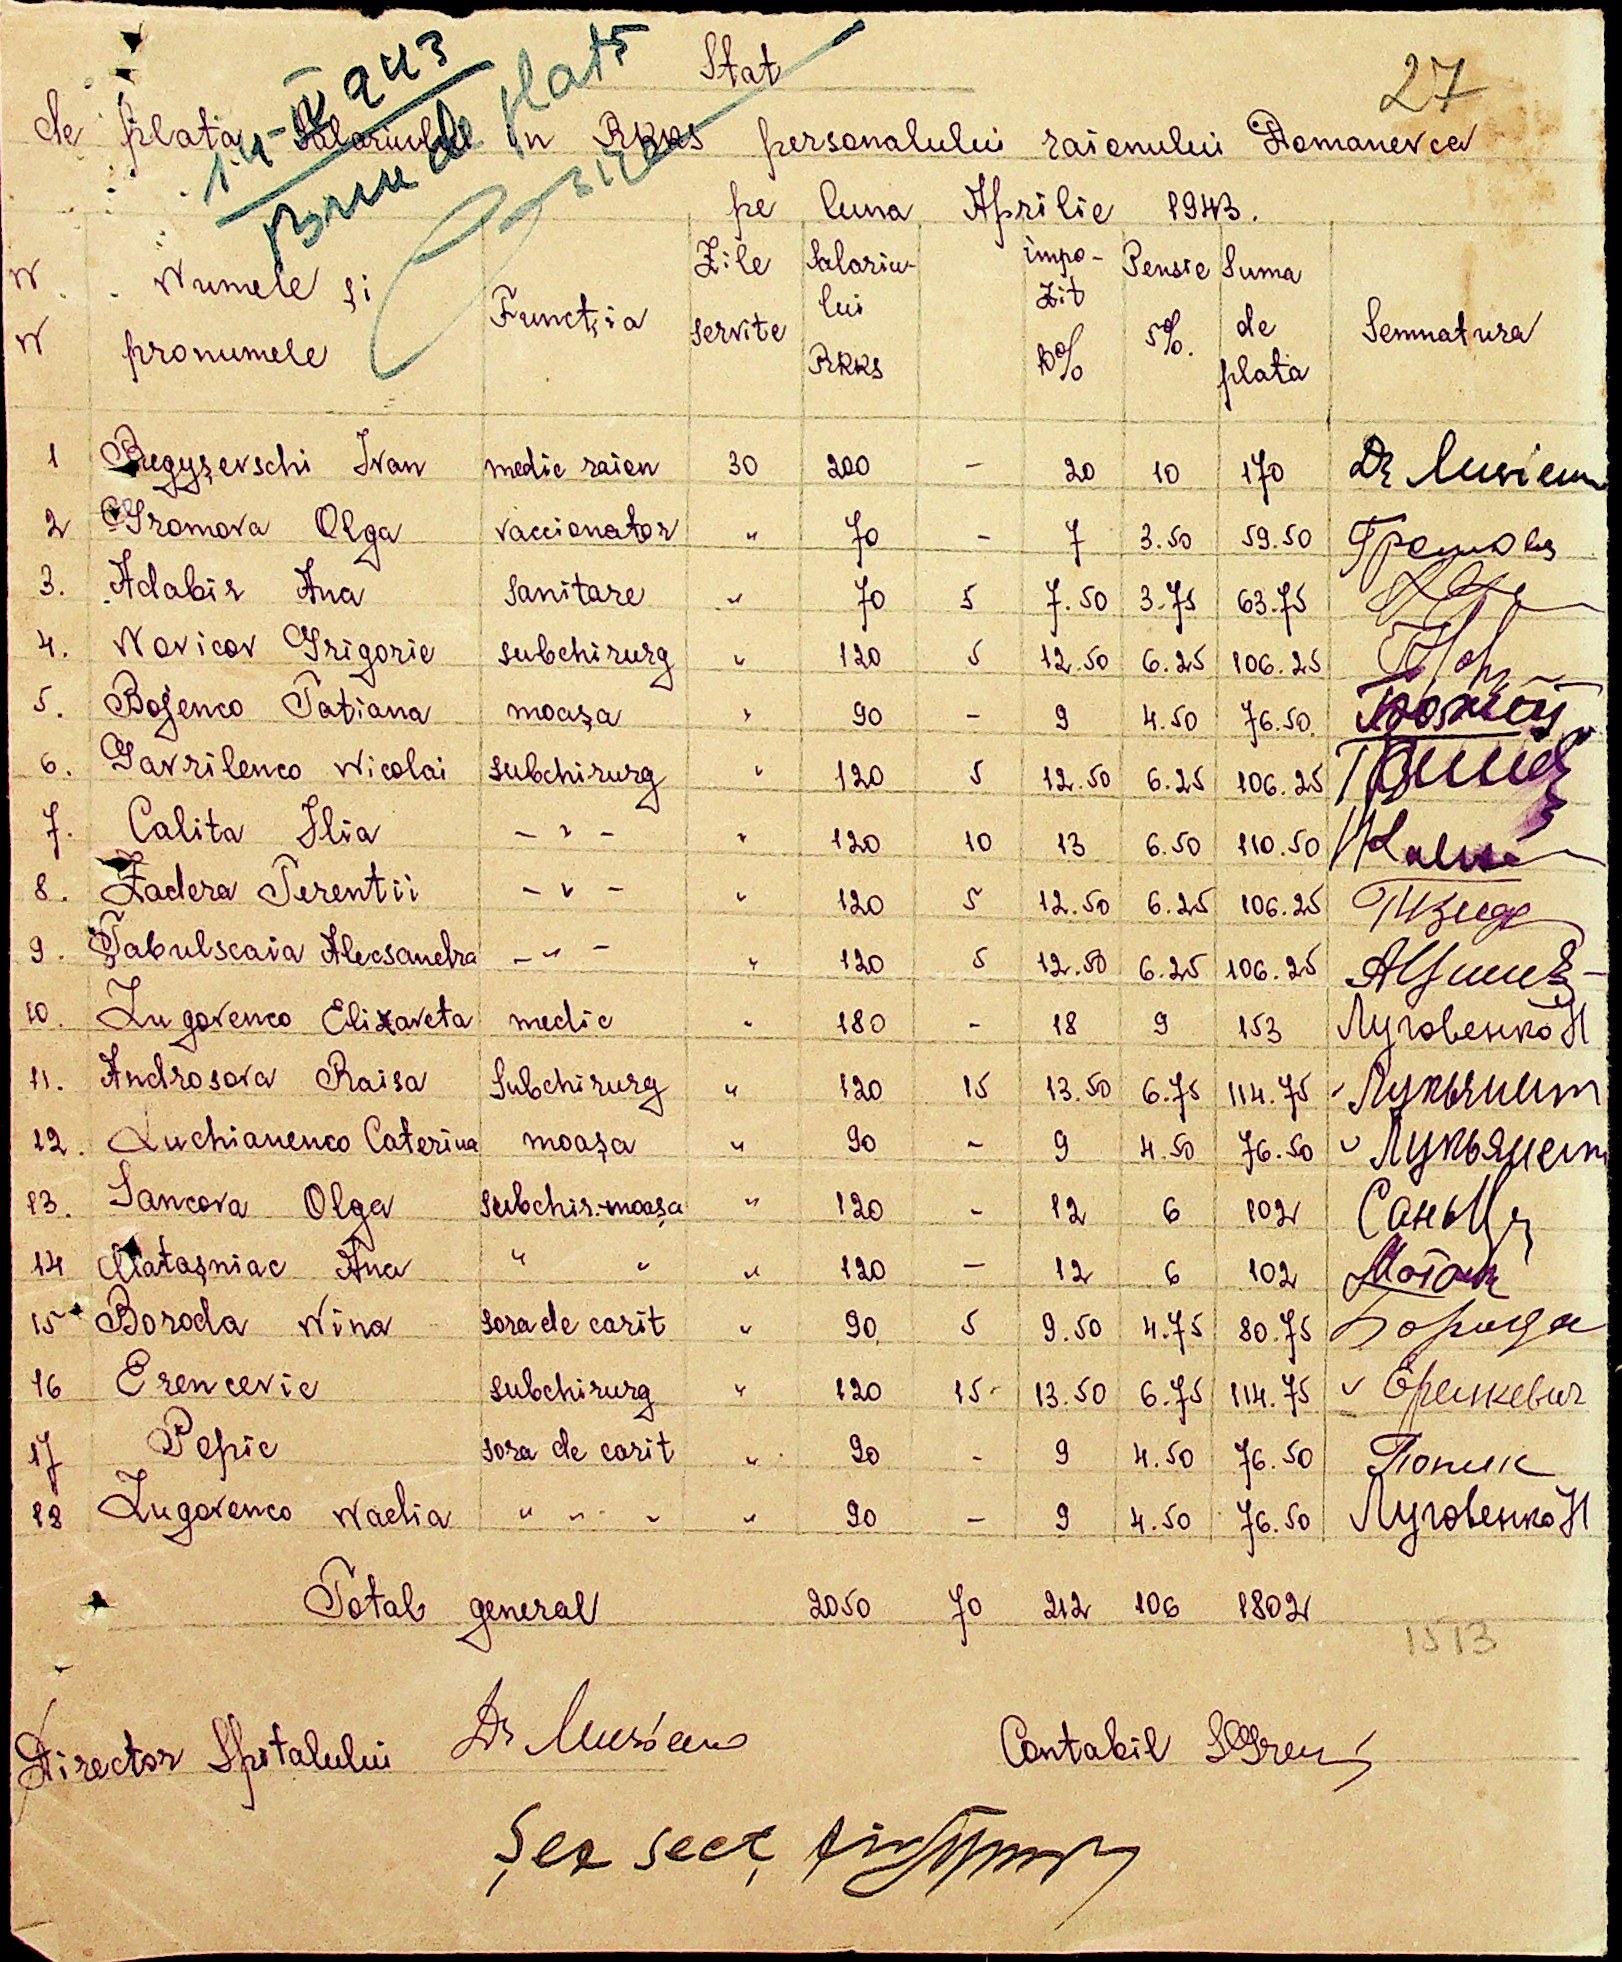 27
Stat
de plata Salariului in RKKS personalului raionului Domanevca
pe luna Aprilie 1943.
Bun de plată
N N Numele și pronumele Funcția Zile servite Salariu-lui RKKS impo-zit 10% Pensie 5%. Suma de plata Semnatura
1 Bregyșevschi Ivan medic raion 30 200 - 20 10 170 Dr
2 Gromova Olga vaccionator " 70 - 7 3.50 59.50 Громова
3. Adabir Ana sanitare " 70 5 7.50 3.75 63.75
4. Novicov Grigorie subchirurg " 120 5 12.50 6.25 106.25
5. Bojenco Tatiana moașa " 90 - 9 4.50 76.50
6. Gavrilenco Nicolai subchirurg " 120 5 12.50 6.25 106.25
7. Calita Ilia - " - " 120 10 13 6.50 110.50
8. Zadera Terentii - " - " 120 5 12.50 6.25 106.25
9. Tabulscaia Alecsandra - " - " 120 5 12.50 6.25 106.25
10. Lugovenco Elizaveta medic " 180 - 18 9 153 Луговенко Н
11. Androsova Raisa Subchirurg " 120 15 13.50 6.75 114.75
12. Luchianenco Caterina moașa " 90 - 9 4.50 76.50 v
13. Sancova Olga subchir.-moașa " 120 - 12 6 102
14 Matașniac Ana " " " 120 - 12 6 102
15 Boroda Nina sora de carit " 90 5 9.50 4.75 80.75 Борода
16 Erencevic subchirurg " 120 15 13.50 6.75 114.75 v Еренкевич
17 Popic sora de carit " 90 - 9 4.50 76.50 Попик
18 Lugovenco Nadia " " " " 90 - 9 4.50 76.50 Луговенко Н
Total general 2050 70 212 106 1802
1513
Director Spitalului Dr Contabil
Șer secț